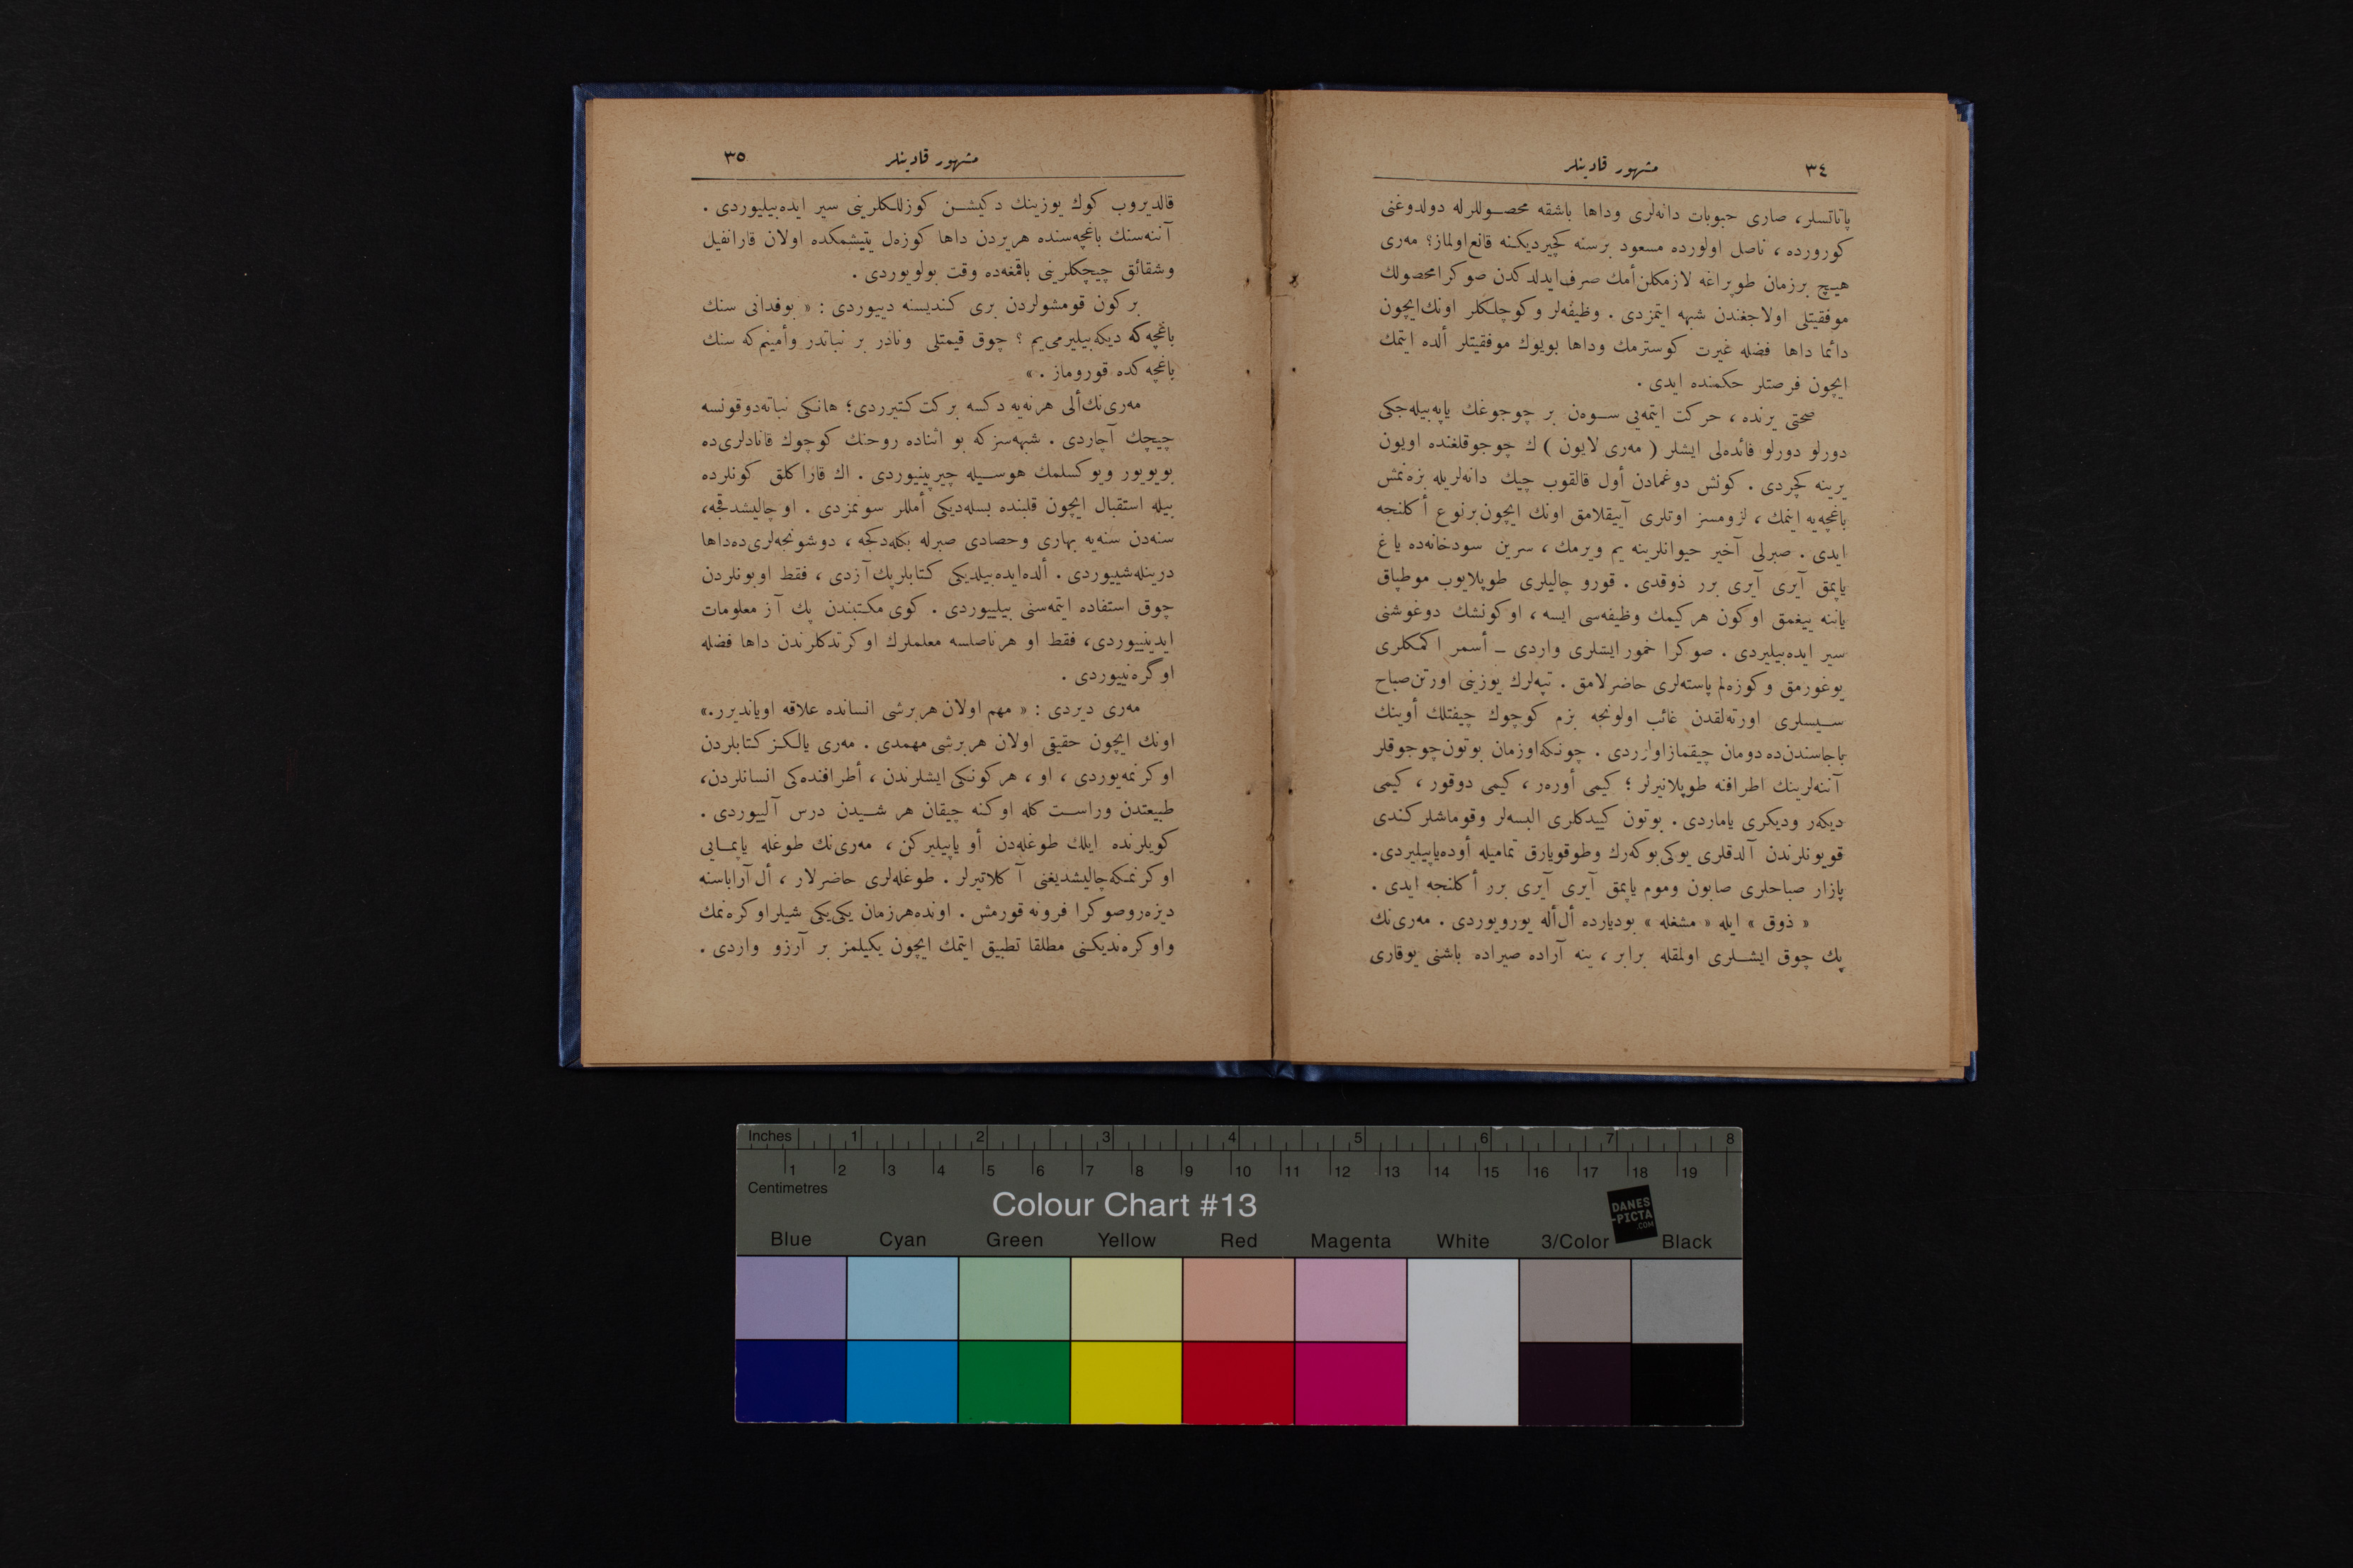 ٣٤
مشهور قادینلر
پاتاتسلر، صاری حبوبات دانه‌لری وداها باشقه محصوللرله دولدوغنی
کورورده ، ناصل اولورده مسعود برسنه کچیردیکنه قانع اولماز؟ مه‌ری
هیچ برزمان طوپراغه لازمکلن أمك صرف ایدلدکدن صوکرا محصولك
موفقیتلی اولاجغندن شبهه ایتمزدی . وظیفه‌لر وکوچلکلر اونك ایچون
دائما داها فضله غیرت کوسترمك وداها بویوك موفقیتلر ألده ایتمك
ایچون فرصتلر حکمنده ایدی .
صحتی یرنده ، حرکت ایتمه‌یی سوه‌ن بر چوجوغك یاپه‌بیله‌جکی
دورلو دورلو فائده‌لی ایشلر ( مه‌ری لایون ) ك چوجوقلغنده اویون
یرینه کچردی . کونش دوغمادن أول قالقوب چیك دانه‌لریله بزه‌نمش
باغچه‌یه اینمك ، لزومسز اوتلری آییقلامق اونك ایچون برنوع أکلنجه
ایدی . صبرلی آخیر حیوانلرینه یم ویرمك ، سرین سودخانه‌ده یاغ
یاپمق آیری آیری برر ذوقدی . قورو چالیلری طوپلایوب موطپاق
یاننه ییغمق اوکون هرکیمك وظیفه‌سی ایسه ، اوکونشك دوغوشنی
سیر ایده‌بیلیردی . صوکرا خمور ایشلری واردی ــ أسمر اکمکلری
یوغورمق وکوزه‌لم پاسته‌لری حاضرلامق . تپه‌لرك یوزینی اورتن صباح
سیسلری اورته‌لقدن غائب اولونجه بزم کوچوك چیفتلك أوینك
باجاسندن‌ده دومان چیقماز اولوردی . چونکه‌ اوزمان بوتون چوجوقلر
آننه‌لرینك اطرافنه طوپلانیرلر ؛ کیمی أوره‌ر ، کیمی دوقور ، کیمی
دیکه‌ر ودیکری یاماردی . بوتون کییدکلری البسه‌لر وقوماشلر کندی
قویونلرندن آلدقلری یوکی بوکه‌رك وطوقویارق تمامیله أوده یاپیلیردی.
پازار صباحلری صابون وموم یاپمق آیری آیری برر أکلنجه ایدی .
« ذوق » ایله « مشغله » بودیارده أل أله یورویوردی . مه‌ری‌نك
پك چوق ایشلری اولمقله برابر ، ینه آراده صیراده باشنی یوقاری
مشهور قادینلر
٣٥
قالدیروب کوك یوزینك دکیشن کوزللکلرینی سیر ایده‌بیلیوردی .
آننه‌سنك باغچه‌سنده هریردن داها کوزه‌ل یتیشمکده اولان قارانفیل
وشقائق چیچکلرینی باقمغه‌ده وقت بولویوردی .
برکون قومشولردن بری کندیسنه دییوردی : « بوفدانی سنك
باغچه‌که دیکه‌بیلیرمی‌یم ؟ چوق قیمتلی ونادر بر نباتدر وأمینم‌که سنك
باغچه‌کده قوروماز . »
مه‌ری‌نك ألی هرنه‌یه دکسه برکت کتیرردی؛ هانکی نباته دوقونسه
چیچك آچاردی . شبهه‌سزکه بو اثناده روحنك کوچوك قانادلری‌ده
بویویور ویوکسلمك هوسیله چیرپینیوردی . اك قاراکلق کونلرده
بیله استقبال ایچون قلبنده بسله‌دیکی أمللر سونمزدی . او چالیشدقجه،
سنه‌دن سنه‌یه بهاری وحصادی صبرله بکله‌دکجه ، دوشونجه‌لری‌ده داها
درینله‌شییوردی . ألده ایده‌بیلدیکی کتابلر پك آزدی ، فقط او بونلردن
چوق استفاده ایتمه‌سنی بیلییوردی . کوی مکتبندن پك آز معلومات
ایدینییوردی، فقط او هرناصلسه معلملرك اوکرتدکلرندن داها فضله
اوگره‌نییوردی .
مه‌ری دیردی : « مهم اولان هربرشی انسانده علاقه اویاندیرر.»
اونك ایچون حقیقی اولان هربرشی مهمدی . مه‌ری یالکز کتابلردن
اوکرنمه‌یوردی ، او ، هرکونکی ایشلرندن ، أطرافنده‌کی انسانلردن،
طبیعتدن وراست کله اوکنه چیقان هر شیدن درس آلییوردی .
کویلرنده ایلك طوغله‌دن أو یاپیلیرکن ، مه‌ری‌نك طوغله یاپمایی
اوکرنمکه چالیشدیغنی آکلاتیرلر . طوغله‌لری حاضرلار ، أل آراباسنه
دیزه‌ر وصوکرا فرونه قورمش . اونده هرزمان یکی یکی شیلر اوکره‌نمك
واوکره‌ندیکنی مطلقا تطبیق ایتمك ایچون یکیلمز بر آرزو واردی .
Inches 1 2 3 4 5 6 7 8
1 2 3 4 5 6 7 8 9 10 11 12 13 14 15 16 17 18 19
Centimetres
Colour Chart #13
DANES
-PICTA
.COM
Blue Cyan Green Yellow Red Magenta White 3/Color Black